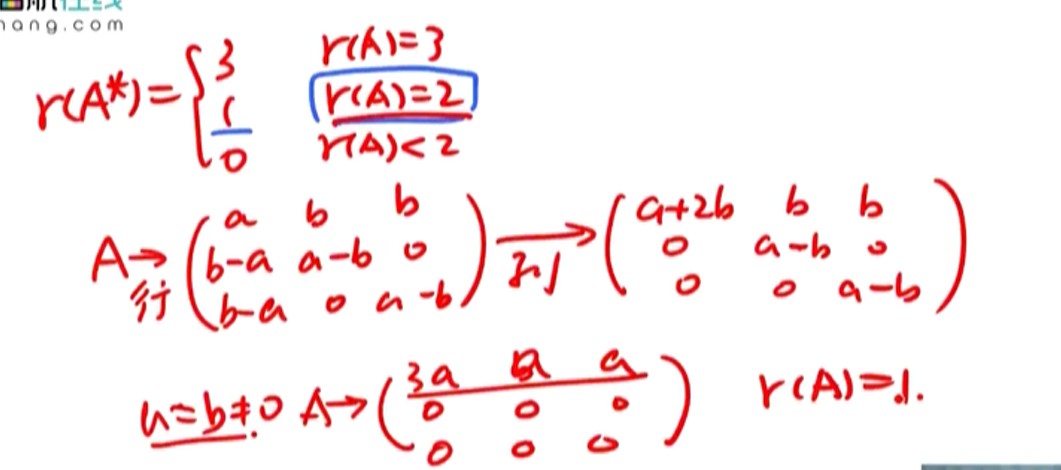 hang.com
r(A*)= { 3 r(A)=3
1 r(A)=2
0 r(A)<2
A →行 ( a b b
b-a a-b 0
b-a 0 a-b ) →列 ( a+2b b b
0 a-b 0
0 0 a-b )
a=b≠0 A→ ( 3a a a
0 0 0
0 0 0 ) r(A)=1.